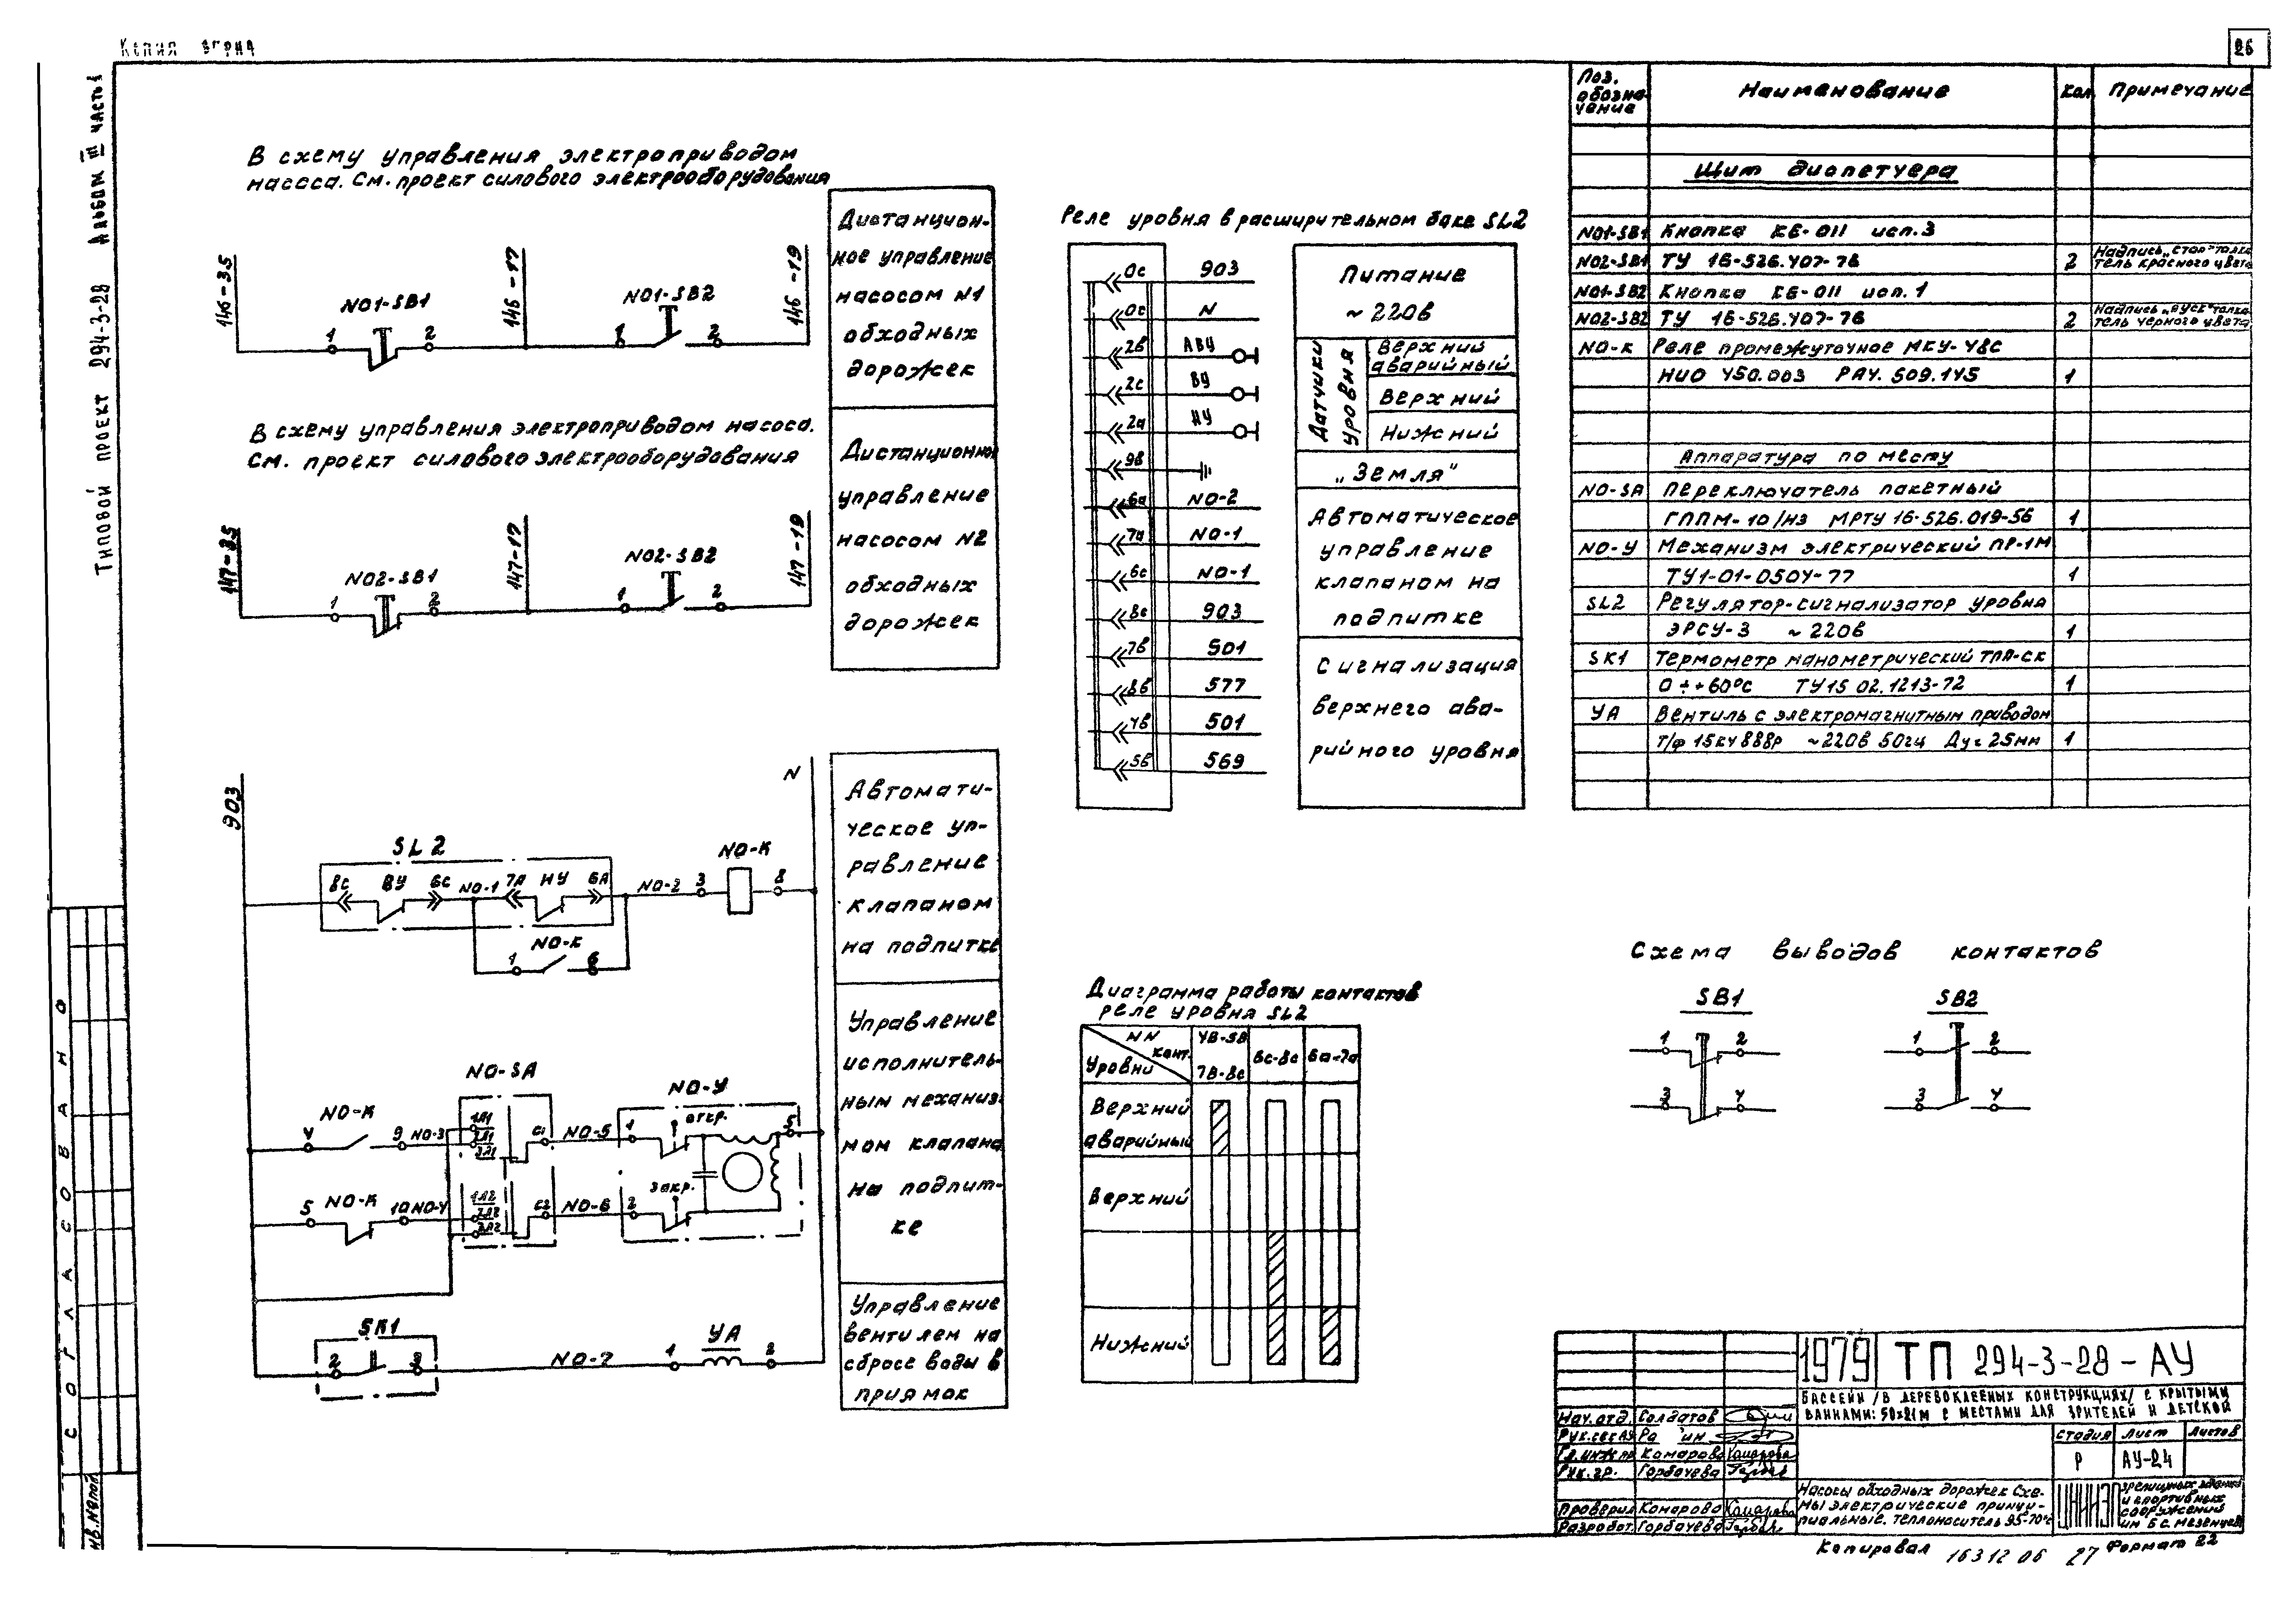 Копия
26
Типовой проект 294-3-28 Альбом III часть 1
В схему управления электроприводом
насоса. См. проект силового электрооборудования
146-35
NO1-SB1
1
2
146-17
NO1-SB2
1
2
146-19
Дистанцион-
ное управление
насосом N1
обходных
дорожек
В схему управления электроприводом насоса.
См. проект силового электрооборудования
147-35
NO2-SB1
1
2
147-17
NO2-SB2
1
2
147-19
Дистанционное
управление
насосом N2
обходных
дорожек
903
N
SL2
8С ВУ 6С NO-1 7А НУ 6А NO-2 3 NO-К 8
NO-К
1 6
Автомати-
ческое уп-
равление
клапаном
на подпитке
NO-SA
NO-У
NO-К
4 9 NO-3
1Л1
2Л1
3Л1
С1 NO-5 1 откр. 5
NO-К
5 10 NO-4
1Л2
2Л2
3Л2
С2 NO-6 2 закр.
Управление
исполнитель-
ным механиз-
мом клапана
на подпит-
ке
SK1
2 3
NO-7
УА
1 2
Управление
вентилем на
сбросе воды в
приямок
Реле уровня в расширительном баке SL2
0с 903
0с N
2в АВУ
2с ВУ
2а НУ
9в
6а NO-2
7а NO-1
6с NO-1
8с 903
7в 501
8б 577
4в 501
5в 569
Питание
~ 220в
Датчики уровня
Верхний
аварийный
Верхний
Нижний
„Земля"
Автоматическое
управление
клапаном на
подпитке
Сигнализация
верхнего ава-
рийного уровня
Диаграмма работы контактов
реле уровня SL2
NN конт.
Уровни
4В-5В
7В-8с
6с-8с
6а-7а
Верхний
аварийный
Верхний
Нижний
Поз. обозна-чение
Наименование
Кол.
Примечание
Щит диспетчера
NO1-SB1 Кнопка КЕ-011 исп.3
NO2-SB1 ТУ 16-526.407-76 2 Надпись „стоп" толка-тель красного цвета
NO1-SB2 Кнопка КЕ-011 исп.1
NO2-SB2 ТУ 16-526.407-76 2 Надпись „пуск" толка-тель черного цвета
NO-К Реле промежуточное МКУ-48С
НИО 450.003 РА4.509.145 1
Аппаратура по месту
NO-SA Переключатель пакетный
ГППМ-10/Н3 МРТУ 16-526.019-56 1
NO-У Механизм электрический ПР-1М
ТУ1-01-0504-77 1
SL2 Регулятор-сигнализатор уровня
ЭРСУ-3 ~ 220в 1
SK1 Термометр манометрический ТПП-СК
0 ÷ +60°С ТУ15 02.1213-72 1
УА Вентиль с электромагнитным приводом
т/ф 15кч888р ~220в 50гц Ду=25мм 1
Схема выводов контактов
SB1
1 2
3 4
SB2
1 2
3 4
СОГЛАСОВАНО
1979
ТП 294-3-28-АУ
Бассейн /в деревоклееных конструкциях/ с крытыми
ваннами: 50x21м с местами для зрителей и детской
Нач.отд. Солдатов
Гл.инж.пр Комарова
Рук.гр. Горбачева
Проверил Комарова
Разработ. Горбачева
Стадия Лист Листов
Р АУ-24
Насосы обходных дорожек Схе-
мы электрические принци-
пиальные. Теплоноситель 95-70°с
ЦНИИЭП
зрелищных зданий
и спортивных
сооружений
им Б.С. Мезенцева
Копировал 16312 06 27 Формат 22